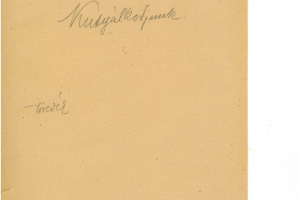 Kutyálkodjunk.
—töredék